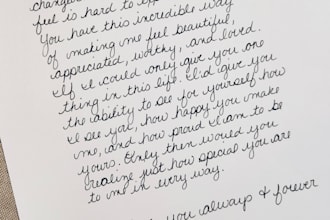 feel is hard to
You have this incredible way
of making me feel beautiful,
appreciated, worthy, and loved.
If I could only give you one
thing in this life, I'd give you
the ability to see for yourself how
I see you, how happy you make
me, and how proud I am to be
yours. Only then would you
realize just how special you are
to me in every way.
you always & forever